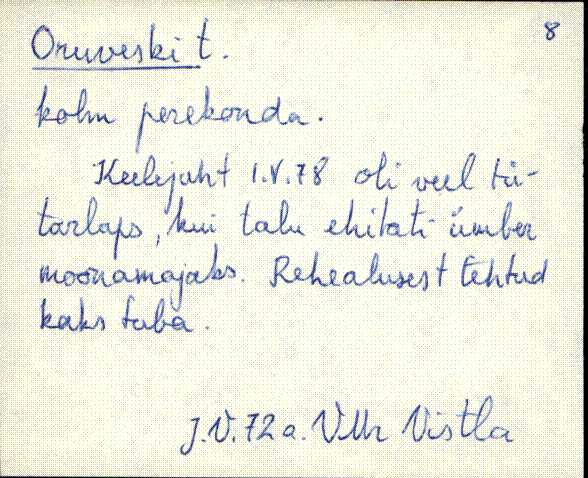 8
Oruveski t.
kolm perekonda.
Keelejuht I.V.78 oli veel tü-
tarlaps, kui talu ehitati ümber
moonamajaks. Rehealusest tehtud
kaks tuba.
J.V.72 a. VMr Vistla